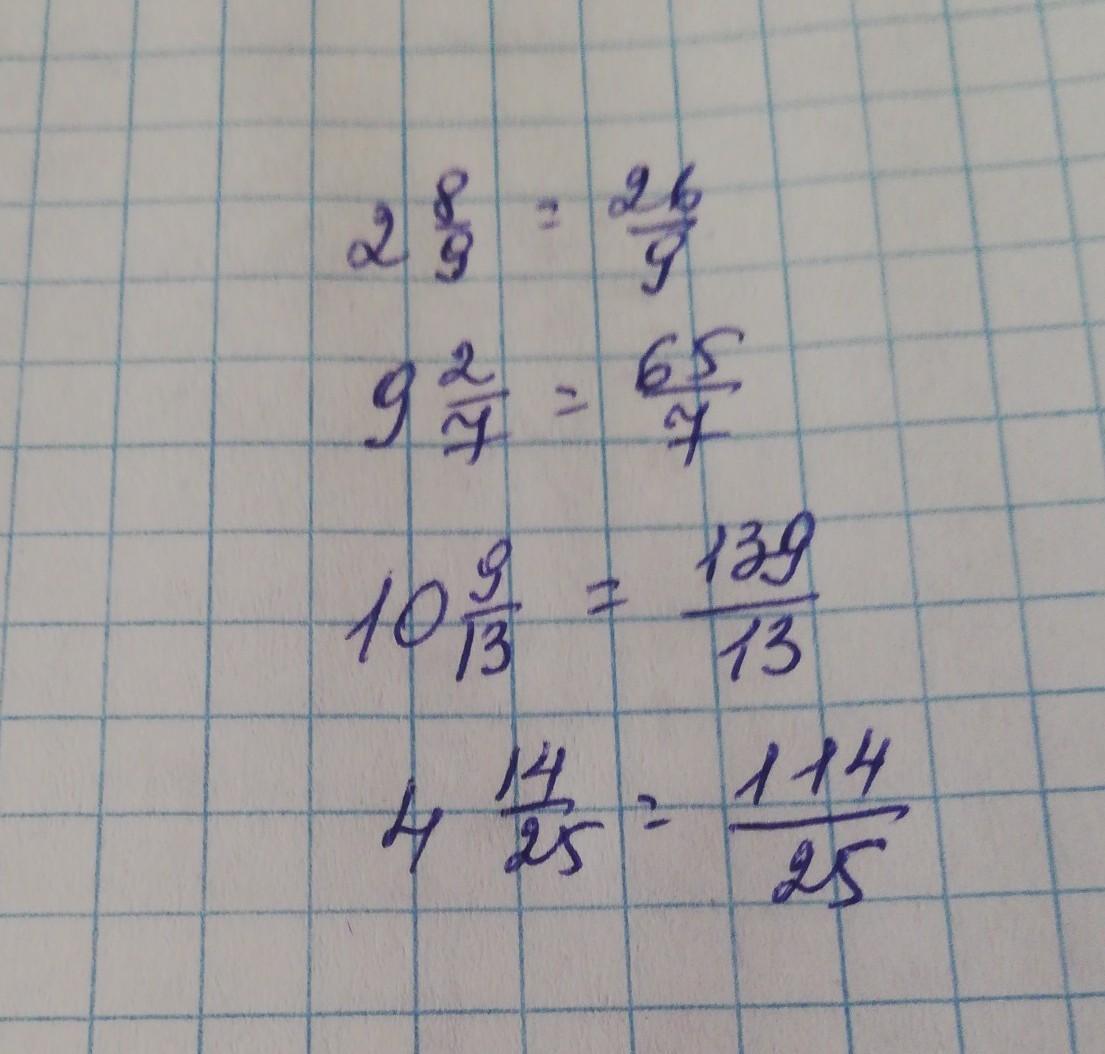 2 8/9 = 26/9
9 2/7 = 65/7
10 9/13 = 139/13
4 14/25 = 114/25